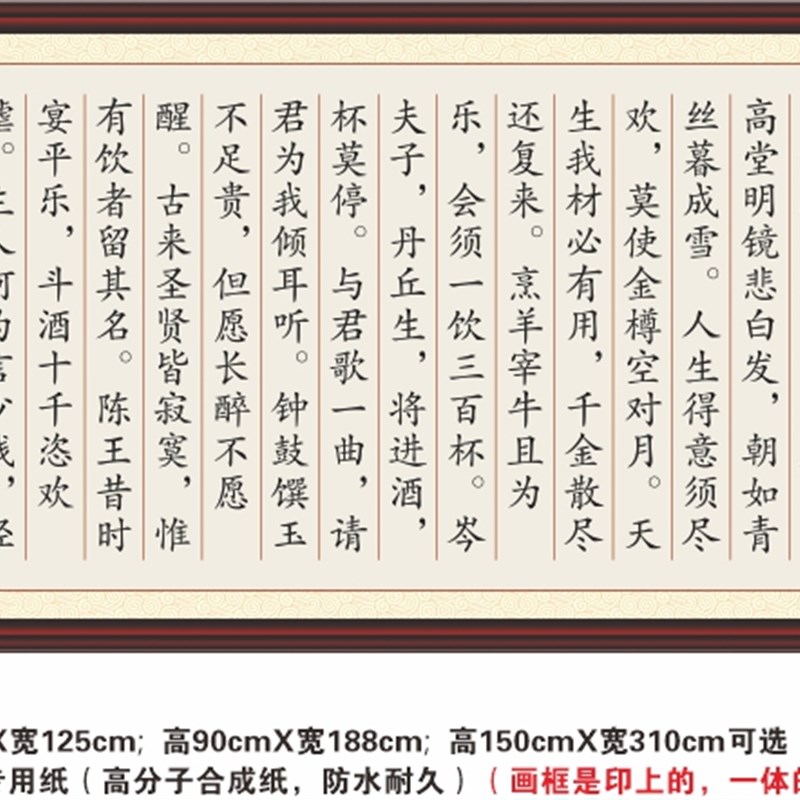 高堂明镜悲白发，朝如青
丝暮成雪。人生得意须尽
欢，莫使金樽空对月。天
生我材必有用，千金散尽
还复来。烹羊宰牛且为
乐，会须一饮三百杯。岑
夫子，丹丘生，将进酒，
杯莫停。与君歌一曲，请
君为我倾耳听。钟鼓馔玉
不足贵，但愿长醉不愿
醒。古来圣贤皆寂寞，惟
有饮者留其名。陈王昔时
宴平乐，斗酒十千恣欢
X宽125cm; 高90cmX宽188cm; 高150cmX宽310cm可选
用纸（高分子合成纸，防水耐久）（画框是印上的，一体